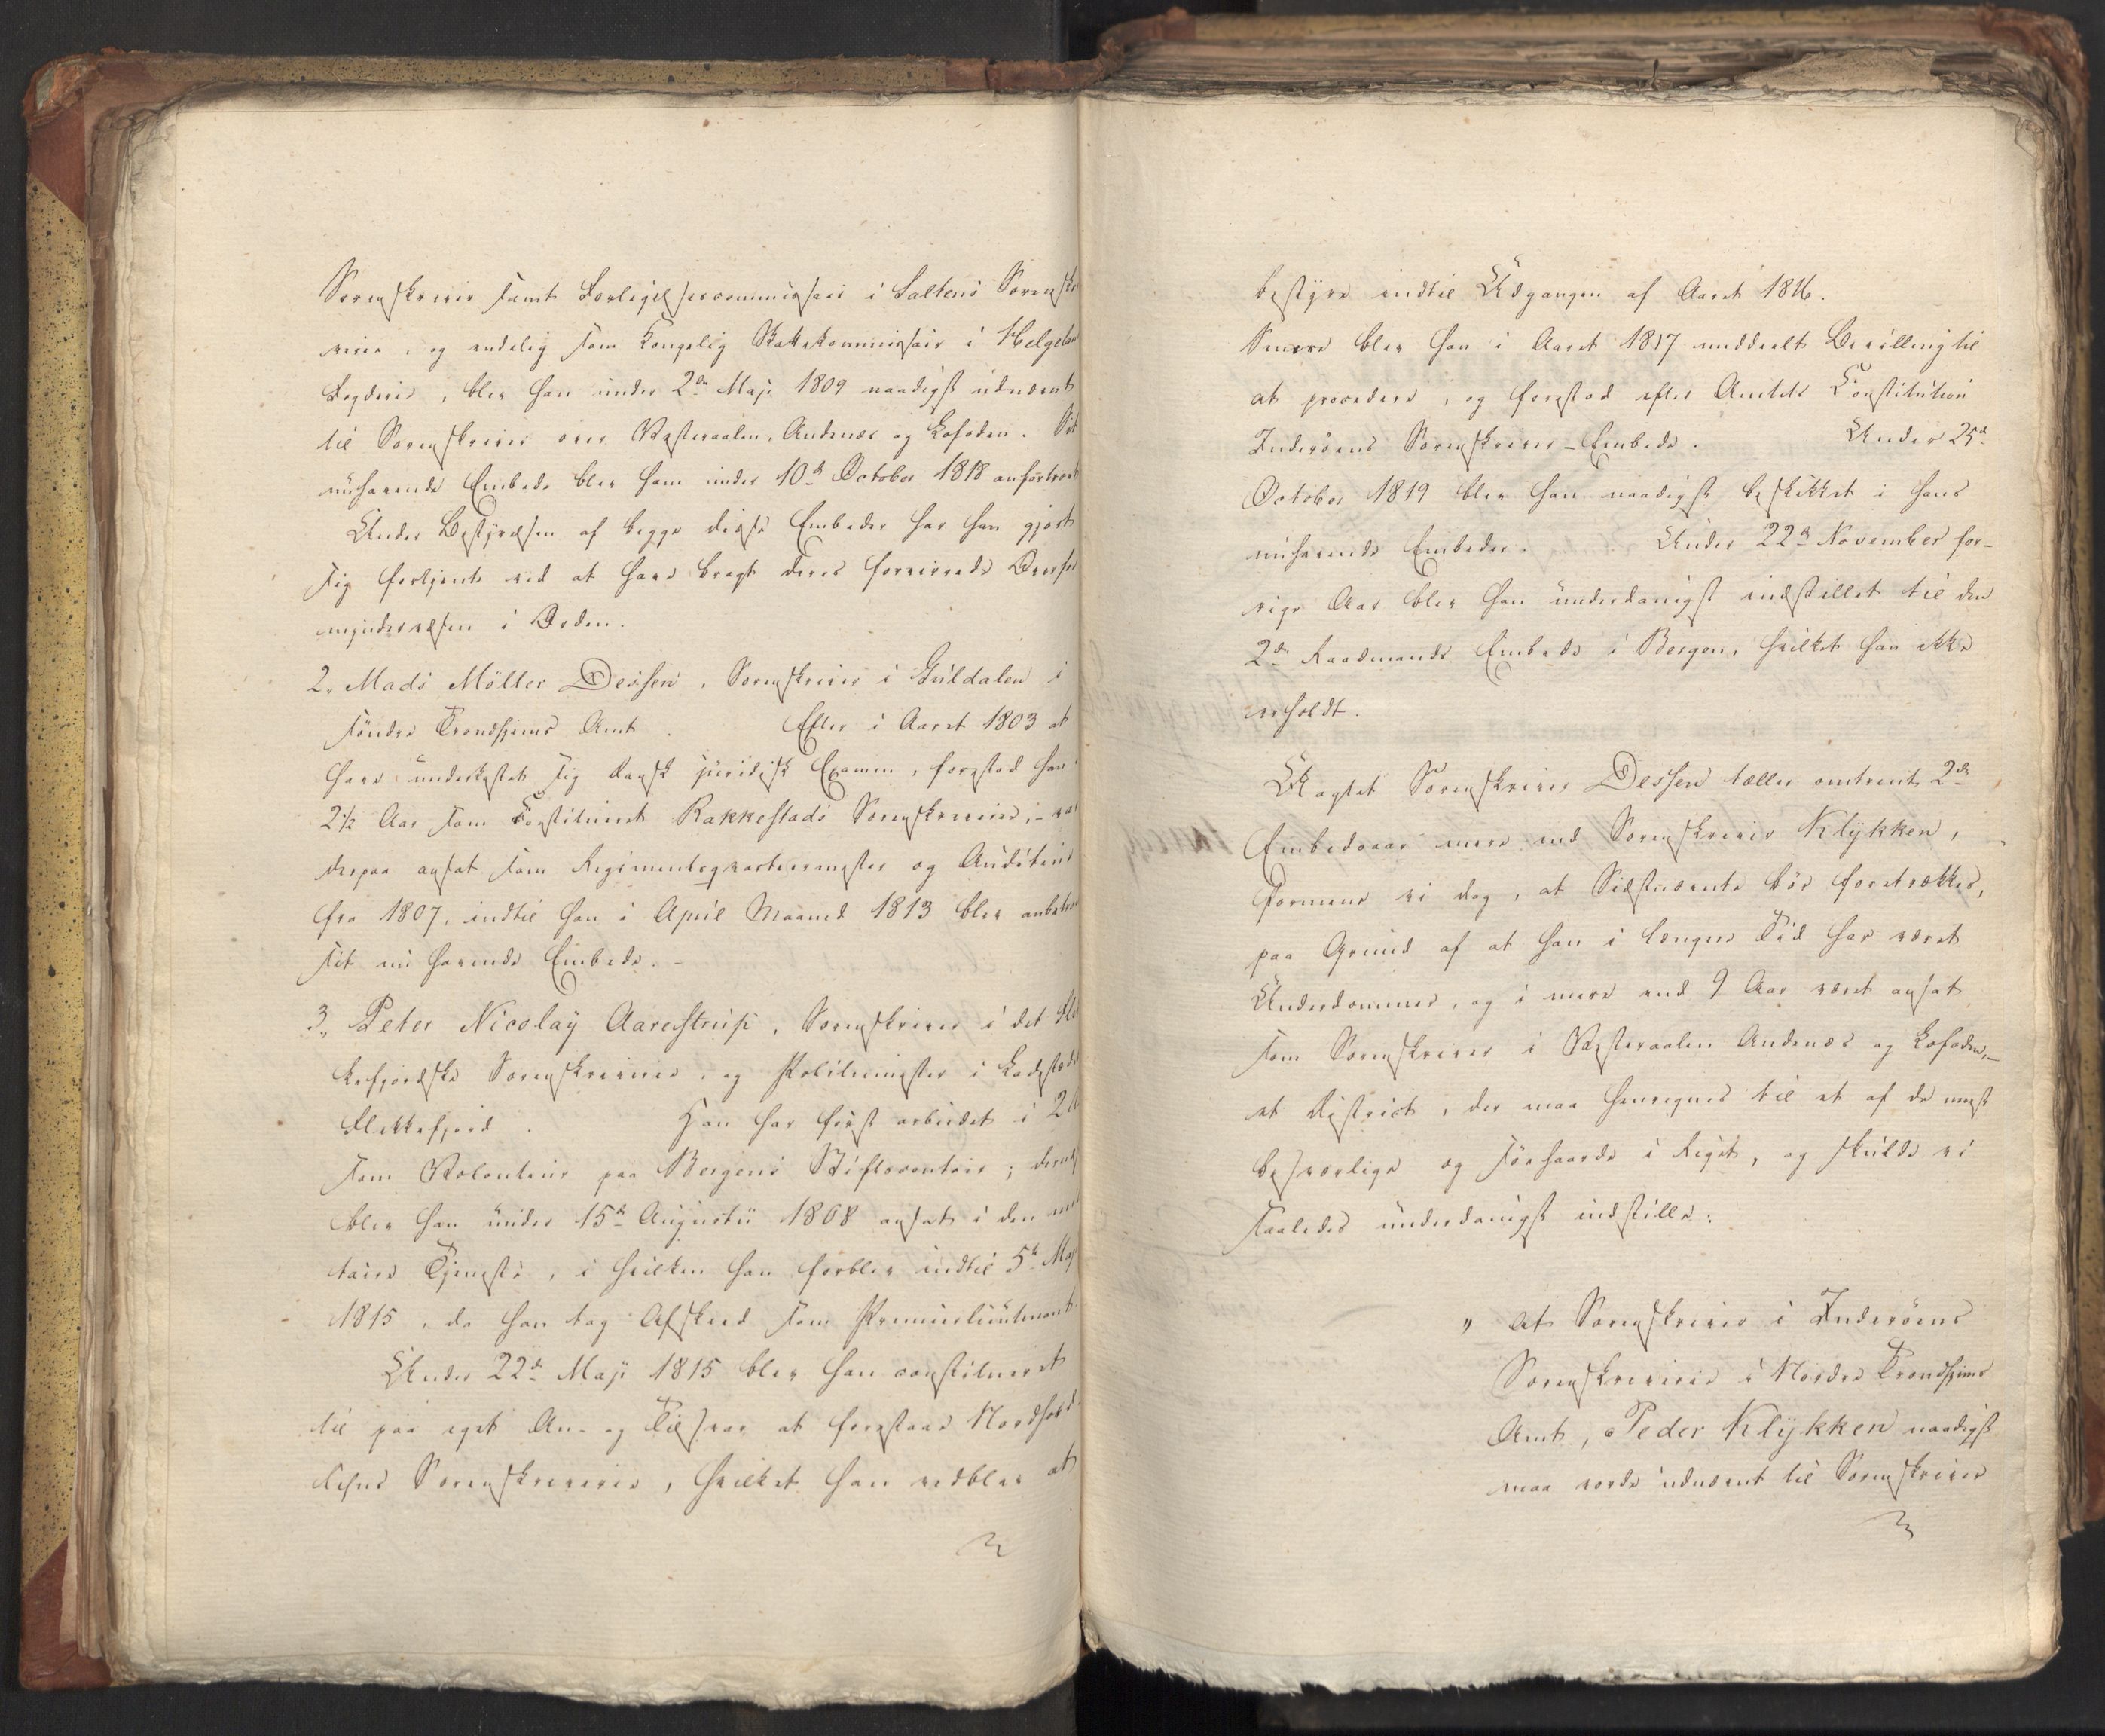 Sorenskriver samt Forligelsescommissair i Saltens Sorensk
riverie, og endelig som Kongelig Skattekommissair i Helgelan
Fogderie, blev han under 2den Maji 1809 naadigst udnævnt
til Sorenskriver over Vesteraalen, Andenæs og Lofoden. Sit
nuhavende Embede blev ham under 10d October 1818 anfortroet
Under Bestyrelsen af begge disse Embeder har han gjort
sig fortjent ved at have bragt deres forvirrede Overfor
mynderwæsen i Orden.
2, Mads Möller Dessen, Sorenskriver i Guldalen i
söndre Trondhjems Amt. Efter i Aaret 1803 at
have underkastet sig dansk juridisk Examen, forestod han
2½ Aar som Constitueret Rakkestads Sorenskriverie, – var
derpaa ansat som Regimentsqvarteermester og Auditeur
fra 1807, indtil han i April Maaned 1813 blev anbetroet
sit nu havende Embede. –
3, Peter Nicolay Aarestrup, Sorenskriver i det Fle
kefjordske Sorenskriverie, og Politiemester i Ladestedet
Flekkefjord. Han har först arbeidet i 2 A
som Volonteur paa Bergens Stiftscontoir; dernæst
blev han under 15d Augustii 1808 ansat i den mi
taire Tjeneste, i hvilken han forblev indtil 5d Maj
1815, da han tog Afskeed som Premierlieutenant.
Under 22d Maji 1815 blev han constitueret
til paa eget An- og Tilsvar at forestaae Nordhord
lehns Sorenskriverie, hvilket han vedblev at
bestyre indtil Udgangen af Aaret 1816.
Senere blev han i Aaret 1817 meddeelt Bevilling til
at procedere, og forestod efter Amtets Constitution
Inderöens Sorenskriver-Embede. Under 25d
October 1819 blev han naadigst beskikket i hans
nuhavende Embeder. Under 22d November for-
rige Aar blev han underdanigst indstillet til den
2den Raadmands Embede i Bergen, hvilket han ikke
erholdt.
Uagtet Sorenskriver Dessen tæller omtrent 2de
Embedsaar mere end Sorenskriver Klykken,
formene vi dog, at Sidstnævnte bör foretrækkes,
paa Grund af at han i længere Tid har været
Underdommer, og i mere end 9 Aar været ansat
som Sorenskriver i Vesteraalen Andenæs og Lofoden, –
et District, der maa henregnes til et af de mest
besværlige og söehaarde i Riget, og skulde vi
saaledes underdanigst indstille:
" at Sorenskriver i Inderöens
Sorenskriverie i Nordre Trondhjems
Amt, Peder Klykken naadigst
maa vorde udnævnt til Sorenskriver